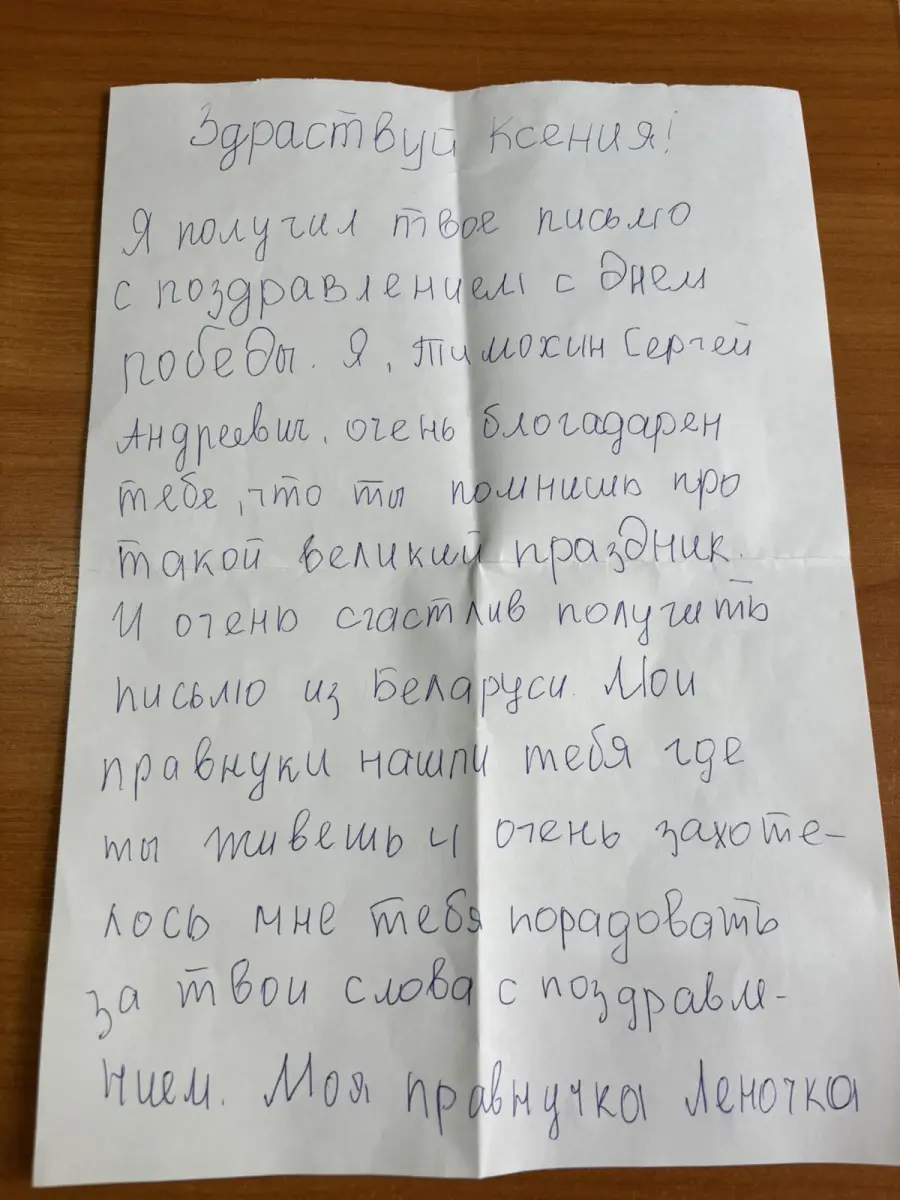 Здраствуй Ксения!
Я получил твое письмо
с поздравлением с Днем
победы. Я, Тимохин Сергей
Андреевич, очень благадарен
тебе, что ты помнишь про
такой великий праздник.
И очень счастлив получить
письмо из Беларуси. Мои
правнуки нашли тебя где
ты живешь и очень захоте-
лось мне тебя порадовать
за твои слова с поздравле-
нием. Моя правнучка Леночка